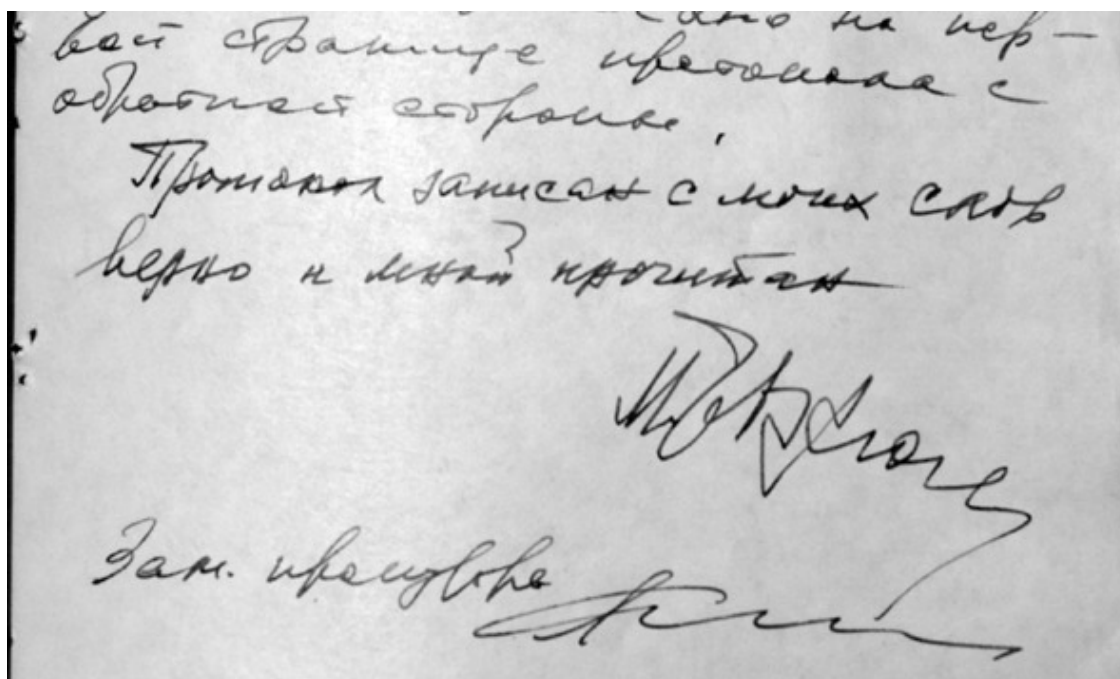 на пер-
вой странице протокола с
обратной стороны.
Протокол записан с моих слов
верно и мной прочитан
Зам. прокурора